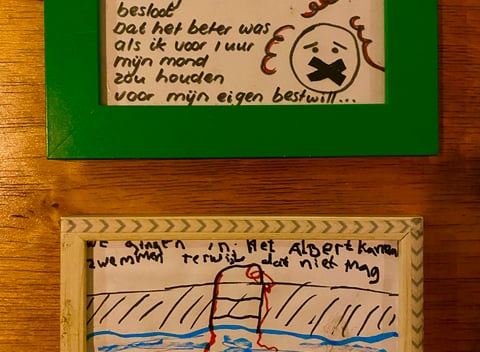 besloot
dat het beter was
als ik voor 1 uur
mijn mond
zou houden
voor mijn eigen bestwill...
we gingen in het Albert kanaal
zwemmen terwijl dat niet mag